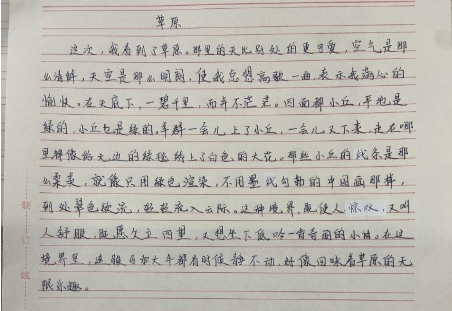 草原
这次，我看到了草原。那里的天比别处的更可爱，空气是那
么清鲜，天空是那么明朗，使我总想高歌一曲，表示我满心的
愉快。在天底下，一碧千里，而并不茫茫。四面都小丘，平地是
绿的，小丘也是绿的，羊群一会儿上了小丘，一会儿又下来，走在哪
里都像给无边的绿毯绣上了白色的大花。那些小丘的线条是那
么柔美，就像只用绿色渲染，不用墨线勾勒的中国画那样，
到处翠色欲流，轻轻流入云际。这种境界，既使人惊叹，又叫
人舒服，既愿久立四望，又想坐下低吟一首奇丽的小诗。在这
境界里，连骏马和大牛都有时候静立不动，好像回味着草原的无
限乐趣。
装
订
线